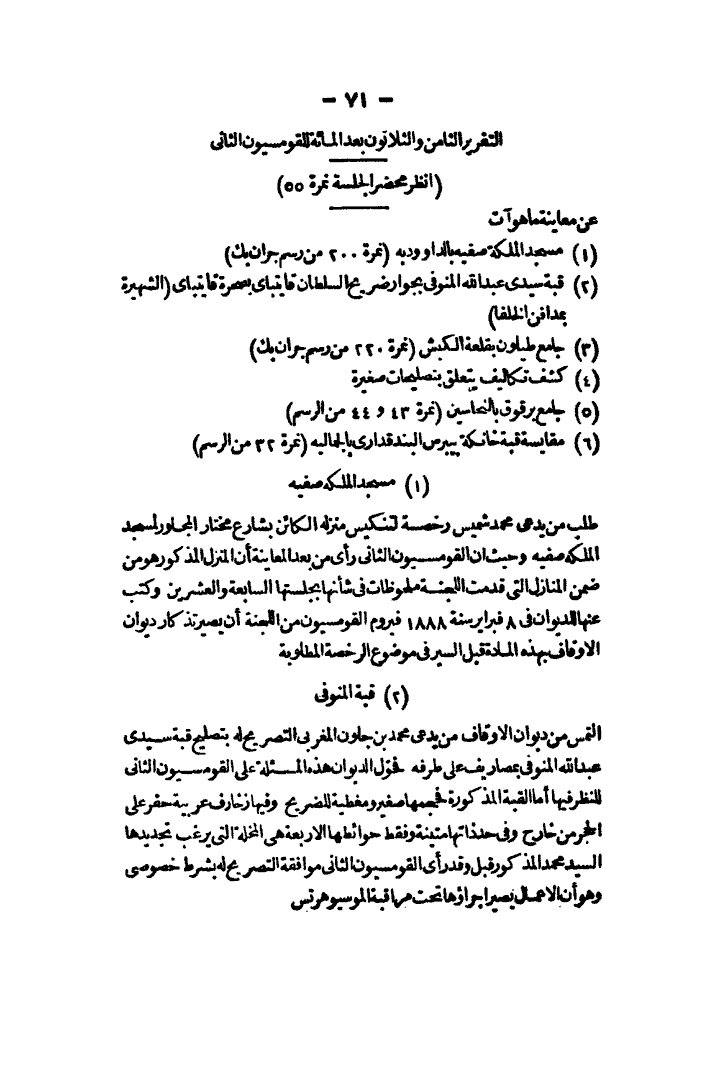 — ٧١ —
التقرير الثامن والثلاثون بعد المائة للقومسيون الثانى
(انظر محضر الجلسة نمرة ٥٥)
عن معاينة ماهوآت
(١) مسجد الملكة صفيه بالداووديه (نمرة ٢٠٠ من رسم جران بك)
(٢) قبة سيدى عبدالله المنوفى بجوار ضريح السلطان قايتباى بصحرة قايتباى (الشهيرة
بمدافن الخلفا)
(٣) جامع طيلون بقلعة الكبش (نمرة ٢٢٠ من رسم جران بك)
(٤) كشف تكاليف يتعلق بتصليحات صغيرة
(٥) جامع برقوق بالنحاسين (نمرة ٤٣ و ٤٤ من الرسم)
(٦) مقايسة قبة خانكة بيبرس البندقدارى بالجاليه (نمرة ٣٢ من الرسم)
(١) مسجد الملكه صفيه
طلب من يدعى محمد شميس رخصة لتنكيس منزله الكائن بشارع مختار المجاور لمسجد
الملكه صفيه وحيث ان القومسيون الثانى رأى من بعد المعاينة أن المنزل المذكور هو من
ضمن المنازل التى قدمت اللجنة ملحوظات فى شأنها بجلستها السابعة والعشرين وكتب
عنها للديوان فى ٨ فبراير سنة ١٨٨٨ فيروم القومسيون من اللجنة أن يصير تذكار ديوان
الاوقاف بهذه المادة قبل السير فى موضوع الرخصة المطلوبة
(٢) قبة المنوفى
التمس من ديوان الاوقاف من يدعى محمد بن جلون المغربى التصريح له بتصليح قبة سيدى
عبدالله المنوفى بمصاريف على طرفه فحوّل الديوان هذه المسئلة على القومسيون الثانى
للنظر فيها أما القبة المذكورة فحجمها صغير ومغطية للضريح وفيها زخارف عربية حفر على
الحجر من خارج وفى حد ذاتها متينة وفقط حوائطها الاربعة هى المخلة التى يرغب تجديدها
السيد محمد المذكور قبل وقد رأى القومسيون الثانى موافقة التصريح له بشرط خصوصى
وهو أن الاعمال يصير اجراؤها تحت مراقبة الموسيو هرتس